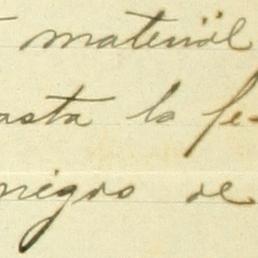 material
asta la fe-
negro de